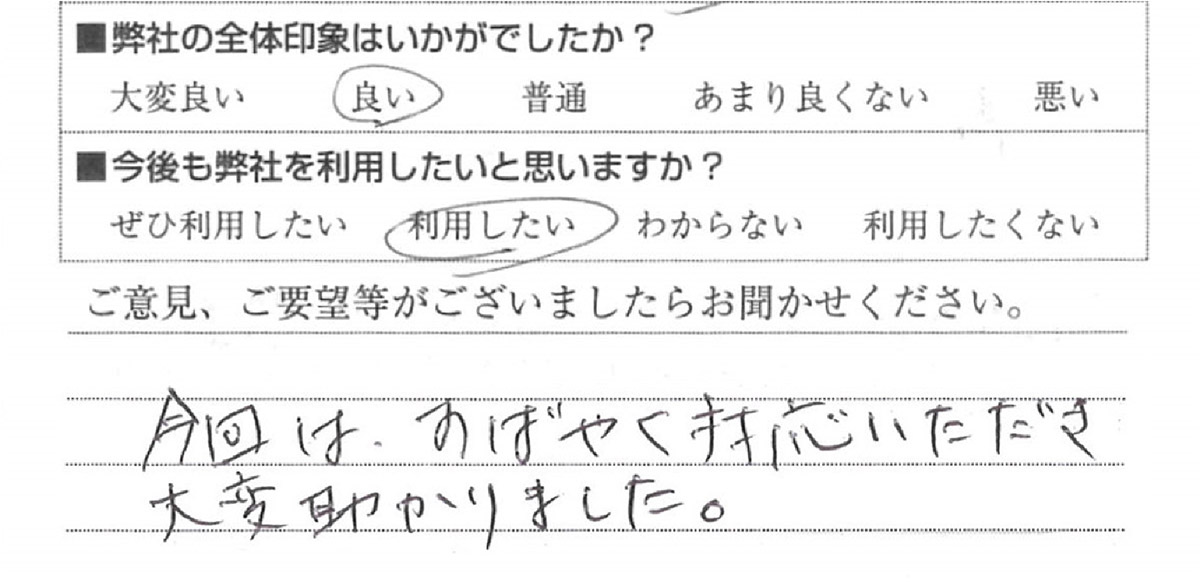 ■弊社の全体印象はいかがでしたか？
大変良い 良い 普通 あまり良くない 悪い
■今後も弊社を利用したいと思いますか？
ぜひ利用したい 利用したい わからない 利用したくない
ご意見、ご要望等がございましたらお聞かせください。
今回は、すばやく対応いただき
大変助かりました。